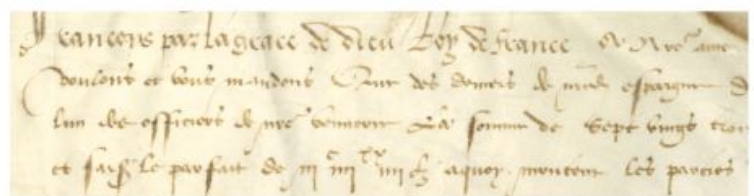 Francoys par la grace de dieu Roy de france A nre ame
voulons et vous mandons Que des deniers de nre espargne d
lun des officiers de nre vennerie La somme de Sept vingts troys
et faisant le parfait de iii c iiii xx iiii aquoy montent les parties